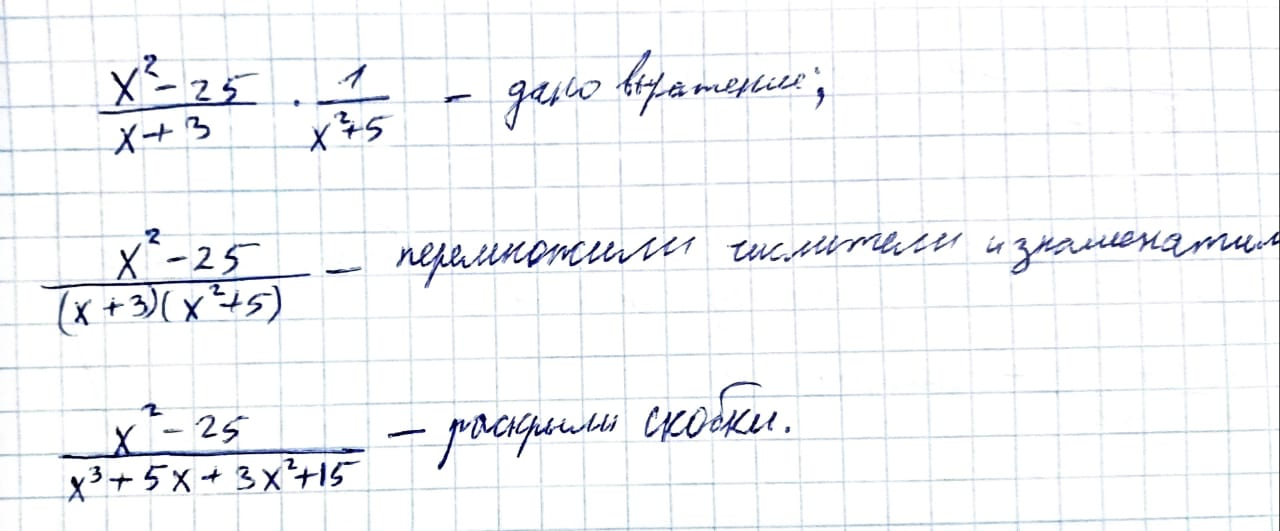 (x² - 25)/(x + 3) · 1/(x² + 5) – дано выражение;
(x² - 25)/((x + 3)(x² + 5)) – перемножили числители и знаменатели
(x² - 25)/(x³ + 5x + 3x² + 15) – раскрыли скобки.